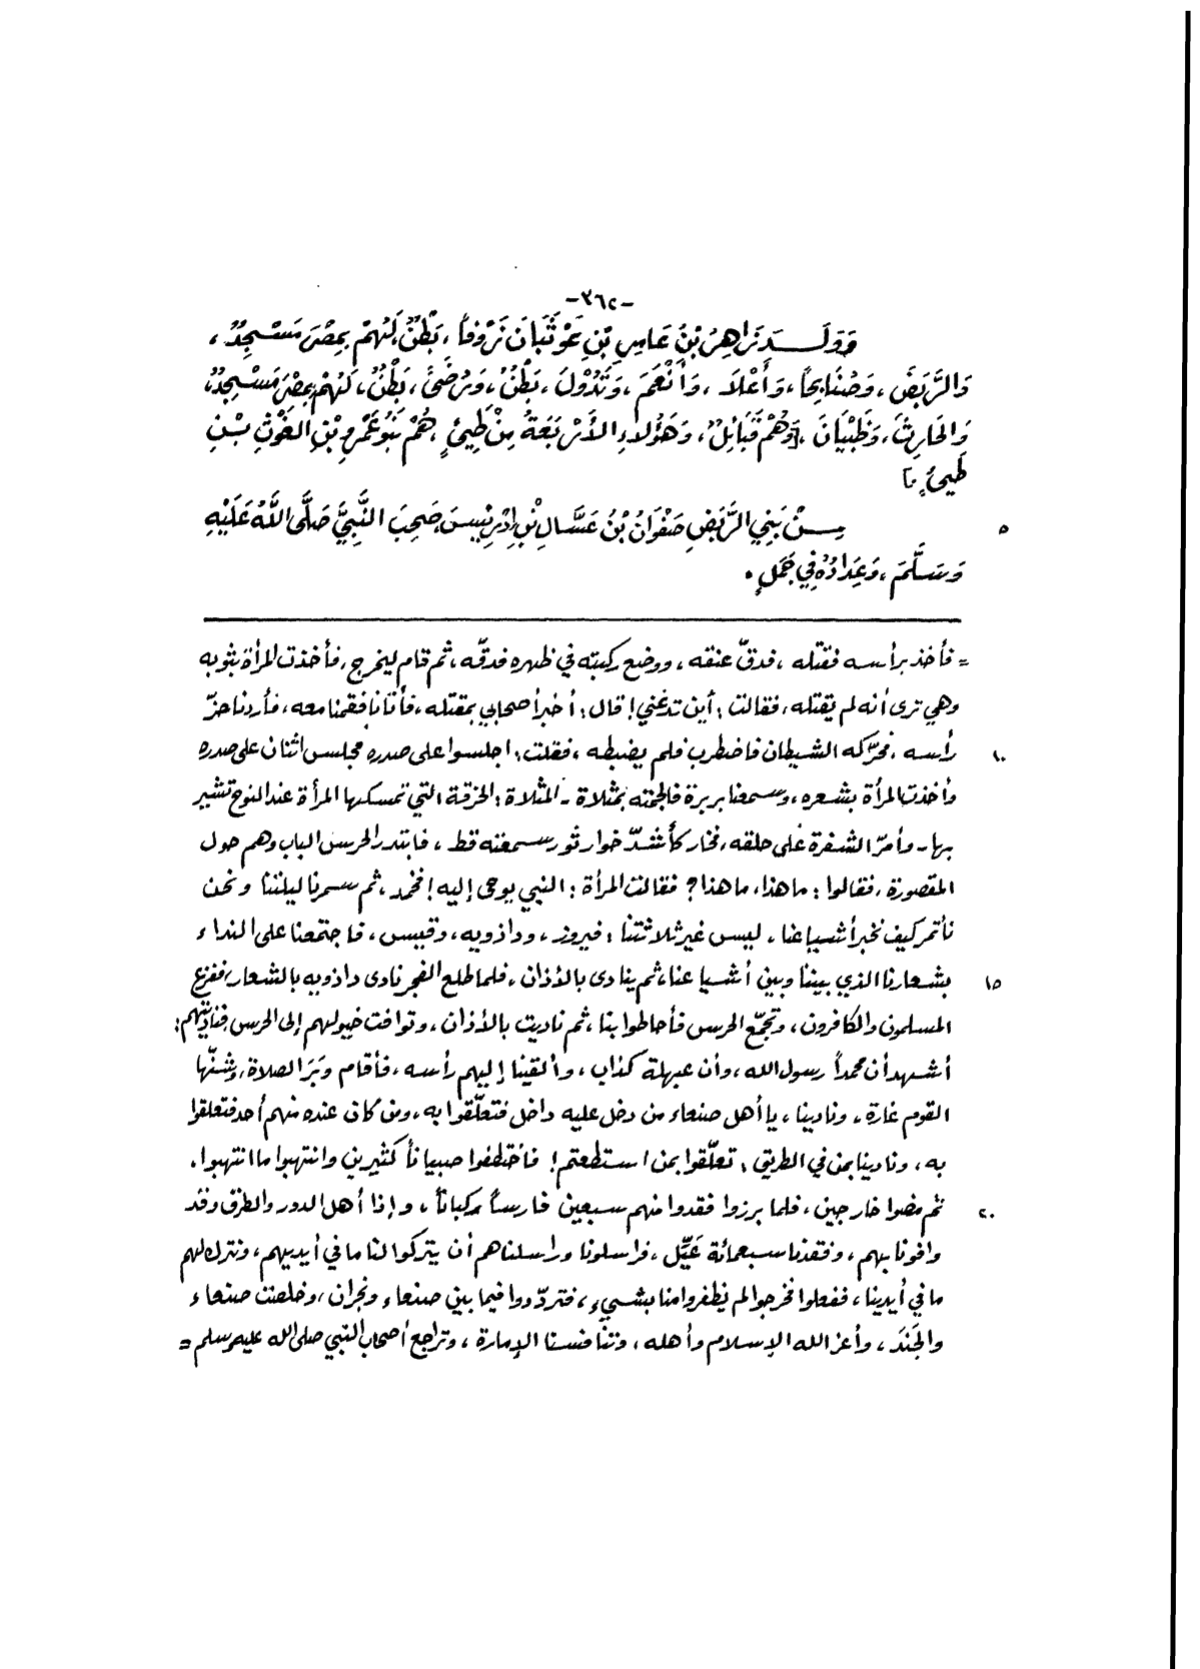 -٣٦٢-
وَوَلَدَ زَاهِرُ بْنُ عَامِرِ بْنِ عَوْثَبَانَ زَوْفاً، بَطْنٌ، لَهُمْ بِمِصْرَ مَسْجِدٌ،
وَالرَّبَضَ، وَصُنَابِحاً، وَأَعْلَا، وَأَنْعَمَ، وَتَدُوْلَ، بَطْنٌ، وَرُضَىً، بَطْنٌ، لَهُمْ بِمِصْرَ مَسْجِدٌ،
وَالحَارِثَ، وَظَبْيَانَ، وَهُمْ قَبَائِلُ، وَهَؤُلاَءِ الأَرْبَعَةُ مِنْ طَيِّئٍ، هُمْ بَنُو عَمْرِو بْنِ الغَوْثِ بْنِ
طَيِّئٍ
مِنْ بَنِي الرَّبَضِ صَفْوَانُ بْنُ عَسَّالِ بْنِ إِدْرِيْسَ، صَحِبَ النَّبِيَّ صَلَّى اللَّهُ عَلَيْهِ
٥
وَسَلَّمَ، وَعِدَادُهُ فِي جَمَلٍ.
= فأخذ برأسه فقتله، فدقّ عنقه، ووضع ركبته في ظهره فدقّه، ثم قام ليخرج، فأخذت المرأة بثوبه
وهي ترى أنه لم يقتله، فقالت: أين تدعني! قال: أخبر أصحابي بمقتله، فأتانا فقمنا معه، فأردنا حزّ
رأسه، فحرّكه الشيطان فاضطرب فلم يضبطه، فقلت: اجلسوا على صدره فجلس اثنان على صدره
١٠
وأخذت المرأة بشعره، وسمعنا بربرة فألجمته بمئلاة - المئلاة: الخرقة التي تمسكها المرأة عند النوح تشير
بها - وأمرّ الشفرة على حلقه، فخار كأشدّ خوار ثور سمعته قط، فابتدر الحرس الباب وهم حول
المقصورة، فقالوا: ما هذا، ما هذا؟ فقالت المرأة: النبي يوحى إليه! فخمد، ثم سمرنا ليلتنا ونحن
نأتمر كيف نخبر أشياعنا، ليس غير ثلاثتنا: فيروز، وداذويه، وقيس، فاجتمعنا على النداء
بشعارنا الذي بيننا وبين أشياعنا، ثم ينادى بالأذان، فلما طلع الفجر نادى داذويه بالشعار، ففزع
١٥
المسلمون والكافرون، وتجمّع الحرس فأحاطوا بنا، ثم ناديت بالأذان، وتوافت خيولهم إلى الحرس فناديتهم:
أشهد أن محمداً رسول الله، وأن عبهلة كذاب، وألقينا إليهم رأسه، فأقام وبَرَ الصلاة، وشنّها
القوم غارة، ونادينا، يا أهل صنعاء من دخل عليه داخل فتعلّقوا به، ومن كان عنده منهم أحد فتعلقوا
به، ونادينا بمن في الطريق: تعلّقوا بمن استطعتم! فاختطفوا صبياناً كثيرين وانتهبوا ما انتهبوا،
ثم مضوا خارجين، فلما برزوا فقدوا منهم سبعين فارساً ركباناً، وإذا أهل الدور والطرق وقد
٢٠
وافونا بهم، وفقدنا سبعمائة عَيِّل، فراسلونا وراسلناهم أن يتركوا لنا ما في أيديهم، ونترك لهم
ما في أيدينا، ففعلوا فخرجوا لم يظفروا منا بشيء، فتردّدوا فيما بين صنعاء ونجران، وخلصت صنعاء
والجَنَدَ، وأعز الله الإسلام وأهله، وتنافسنا الإمارة، وتراجع أصحاب النبي صلى الله عليه وسلم =